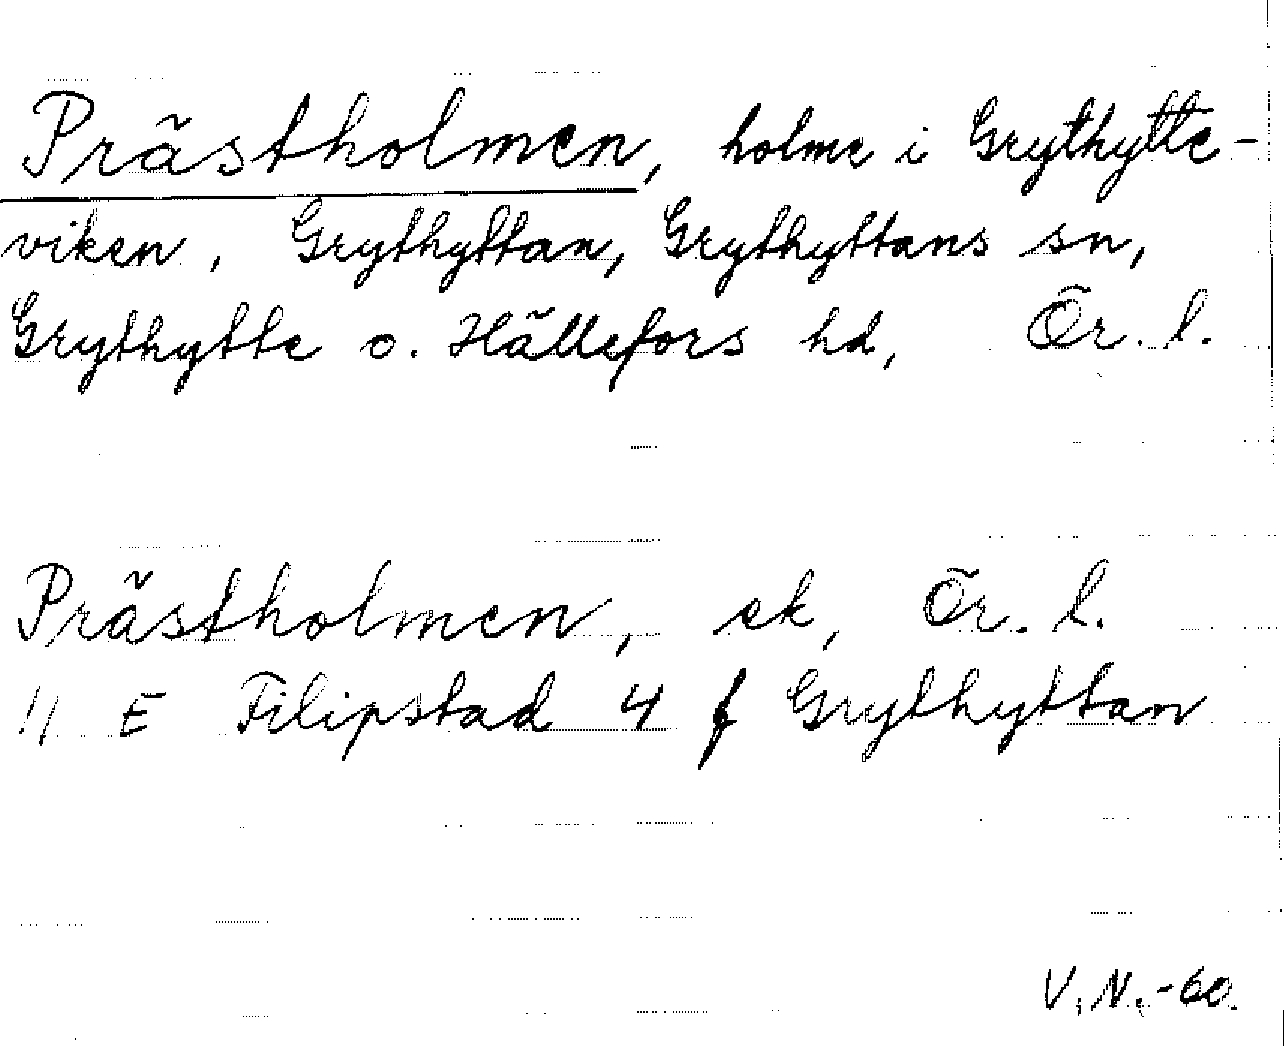 Prästholmen, holme i Grythytte-
viken, Grythyttan, Grythyttans sn,
Grythytte o. Hällefors hd, Ör. l.
Prästholmen, ek, Ör. l.
11 E Filipstad 4 f Grythyttan
V.N.-60.